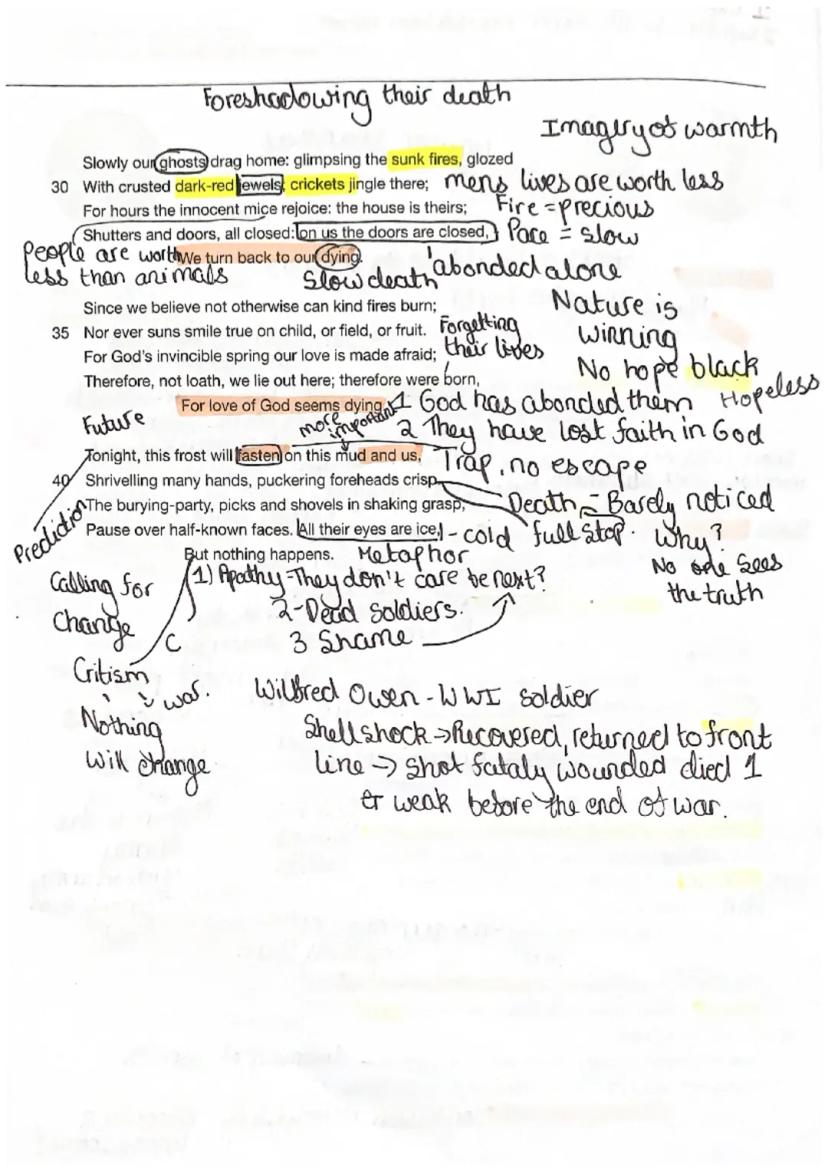 Foreshadowing their death
Imagery of warmth
Slowly our ghosts drag home: glimpsing the sunk fires, glozed
30 With crusted dark-red jewels; crickets jingle there; mens lives are worth less
For hours the innocent mice rejoice: the house is theirs; Fire = precious
Shutters and doors, all closed: on us the doors are closed, Pace = slow
People are worth We turn back to our dying.
less than animals Slow death 'abonded alone
Since we believe not otherwise can kind fires burn; Nature is
35 Nor ever suns smile true on child, or field, or fruit. Forgetting winning
For God's invincible spring our love is made afraid; their lives
Therefore, not loath, we lie out here; therefore were born, No hope black
For love of God seems dying. 1 God has abonded them Hopeless
Future more important 2 They have lost faith in God
Tonight, this frost will fasten on this mud and us, Trap, no escape
40 Shrivelling many hands, puckering foreheads crisp.
The burying-party, picks and shovels in shaking grasp, Death - Barely noticed
Prediction Pause over half-known faces. All their eyes are ice, - cold full stop. Why?
But nothing happens. Metaphor No one sees
the truth
Calling for 1) Apathy - They don't care be next?
Change 2 - Dead soldiers.
C 3 Shame
Critism
war.
Nothing
will change
Wilfred Owen - WWI soldier
Shellshock → Recovered, returned to front
line → shot fataly wounded died 1
weak before the end of war.